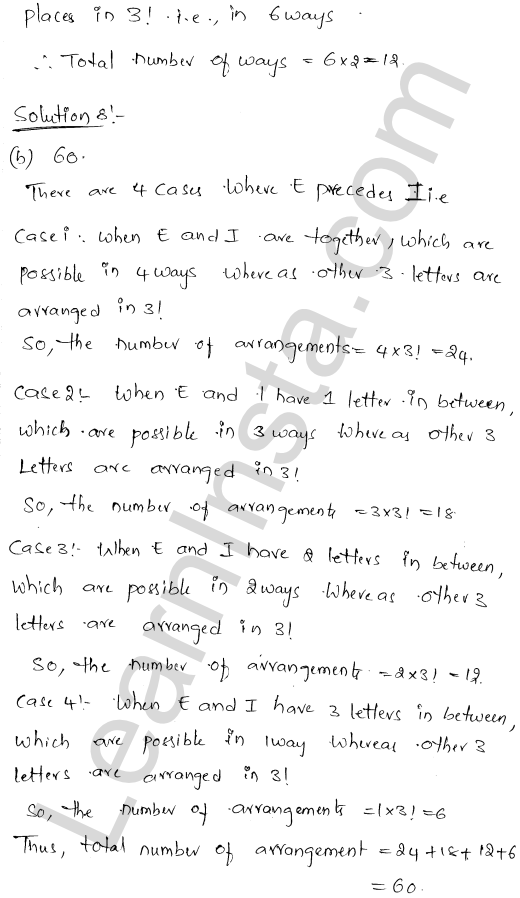 places in 3! i.e., in 6 ways.
∴ Total number of ways = 6x2=12.
Solution 8:-
(b) 60.
There are 4 cases where E precedes I i.e
Case i: when E and I are together, which are
possible in 4 ways where as other 3 letters are
arranged in 3!
So, the number of arrangements = 4x3! = 24.
Case 2:- When E and I have 1 letter in between,
which are possible in 3 ways where as other 3
Letters are arranged in 3!
So, the number of arrangements = 3x3! = 18
Case 3:- When E and I have 2 letters in between,
which are possible in 2 ways where as other 3
letters are arranged in 3!
So, the number of arrangements = 2x3! = 12.
Case 4:- When E and I have 3 letters in between,
which are possible in 1 way whereas other 3
letters are arranged in 3!
So, the number of arrangements = 1x3! = 6
Thus, total number of arrangement = 24+18+12+6
= 60.
LearnInsta.com